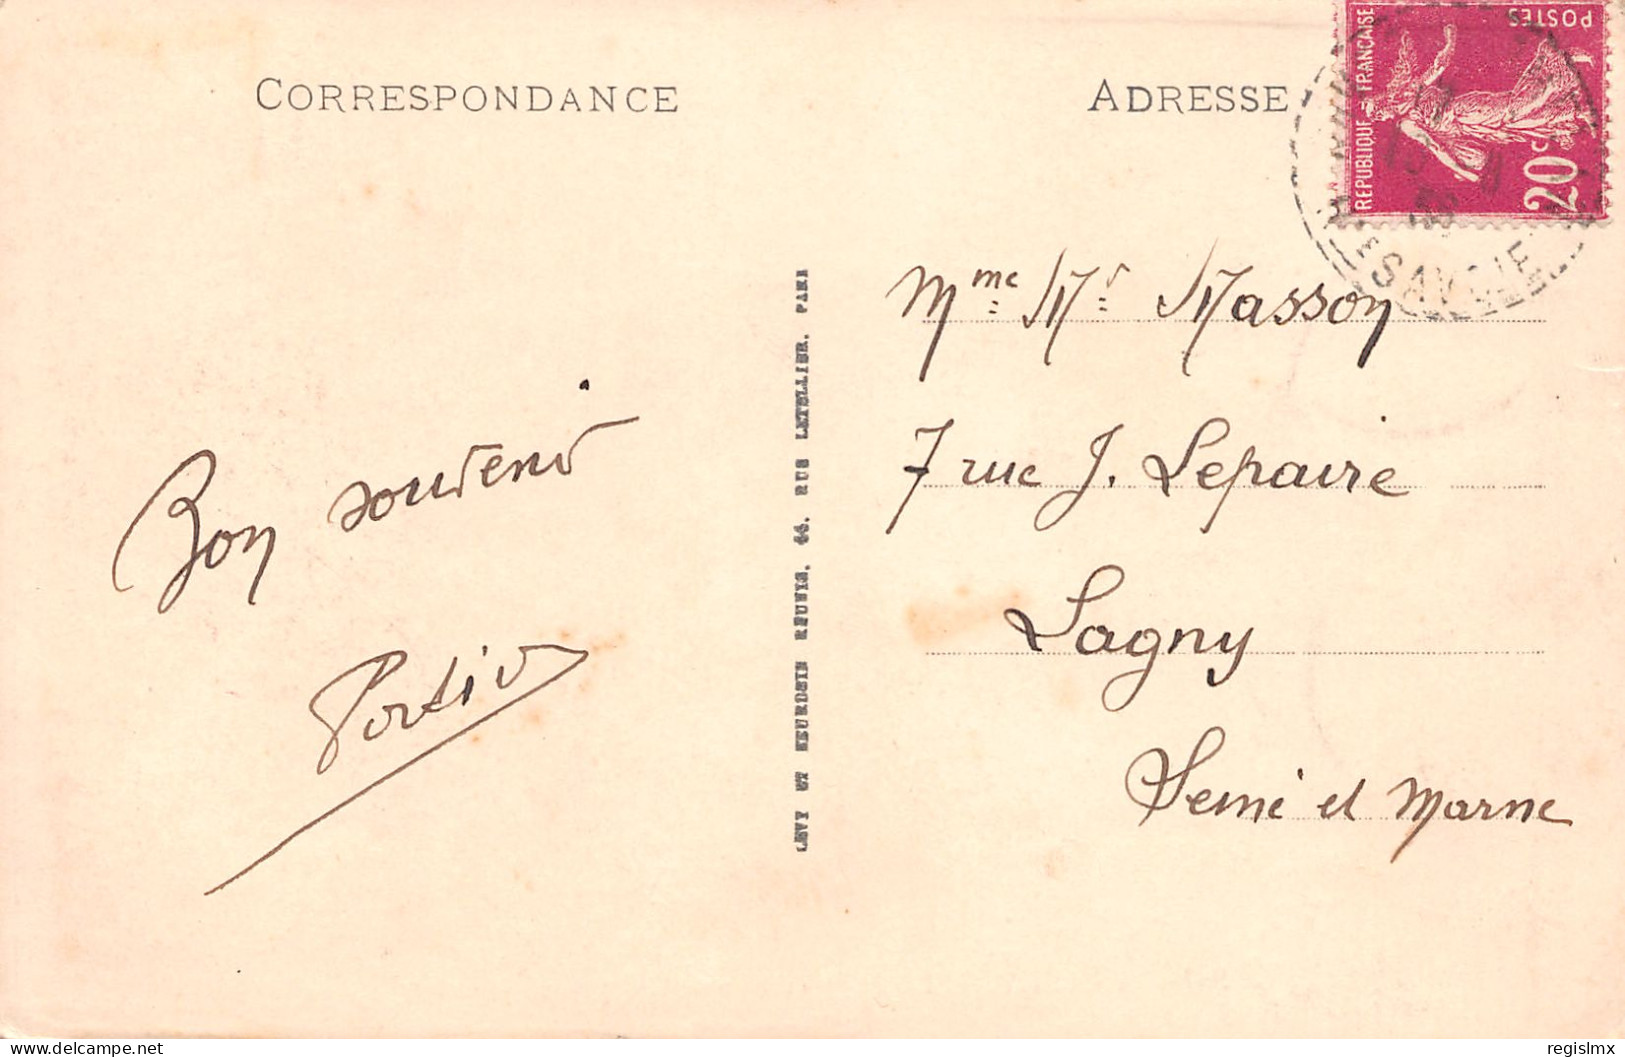 CORRESPONDANCE
ADRESSE
RÉPUBLIQUE - FRANÇAISE
POSTES
20c
SAVOIE
Bon souvenir
LEVY ET NEURDEIN RÉUNIS, 44, RUE LETELLIER, PARIS
Mme Mr Masson
7 rue J. Lepaire
Lagny
Seine et Marne
delcampe.net
regislmx